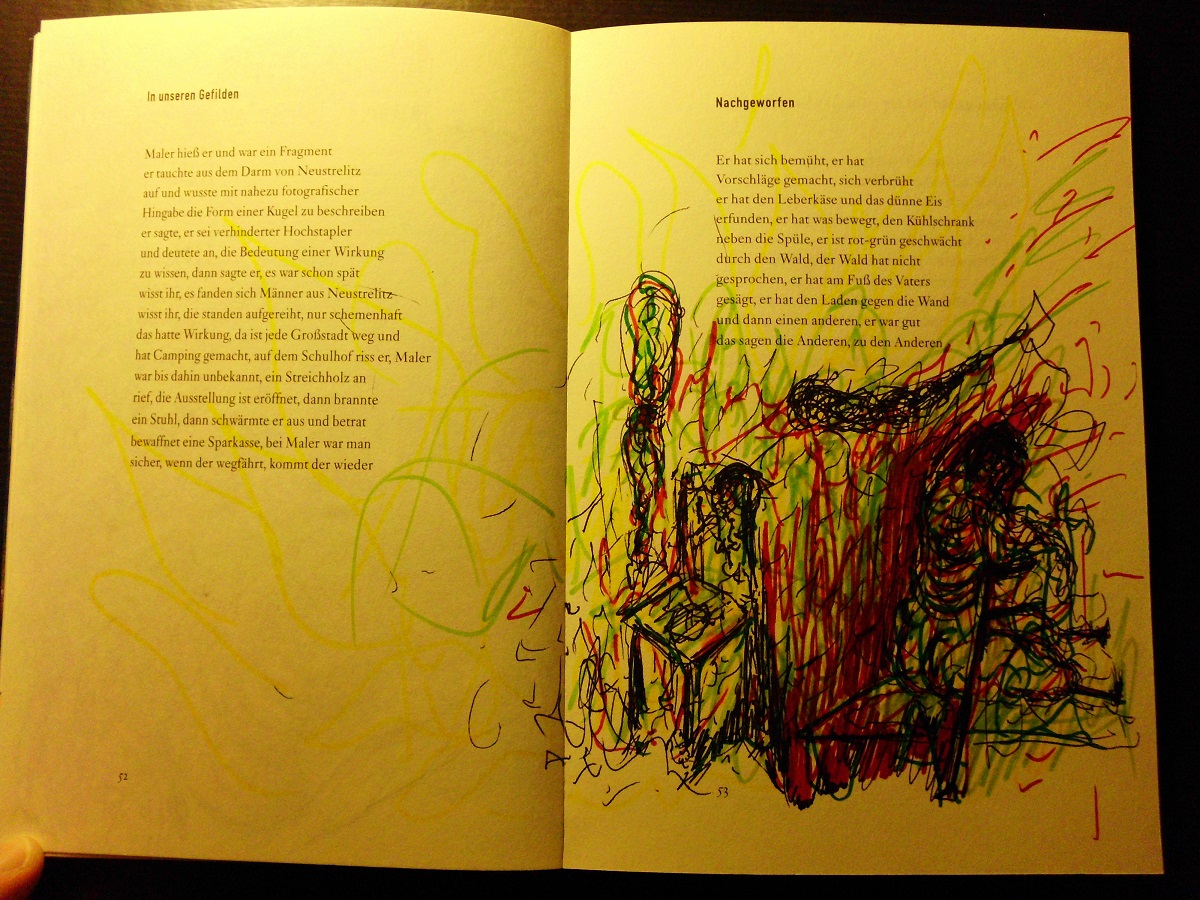 In unseren Gefilden
Maler hieß er und war ein Fragment
er tauchte aus dem Darm von Neustrelitz
auf und wusste mit nahezu fotografischer
Hingabe die Form einer Kugel zu beschreiben
er sagte, er sei verhinderter Hochstapler
und deutete an, die Bedeutung einer Wirkung
zu wissen, dann sagte er, es war schon spät
wisst ihr, es fanden sich Männer aus Neustrelitz
wisst ihr, die standen aufgereiht, nur schemenhaft
das hatte Wirkung, da ist jede Großstadt weg und
hat Camping gemacht, auf dem Schulhof riss er, Maler
war bis dahin unbekannt, ein Streichholz an
rief, die Ausstellung ist eröffnet, dann brannte
ein Stuhl, dann schwärmte er aus und betrat
bewaffnet eine Sparkasse, bei Maler war man
sicher, wenn der wegfährt, kommt der wieder
52
Nachgeworfen
Er hat sich bemüht, er hat
Vorschläge gemacht, sich verbrüht
er hat den Leberkäse und das dünne Eis
erfunden, er hat was bewegt, den Kühlschrank
neben die Spüle, er ist rot-grün geschwächt
durch den Wald, der Wald hat nicht
gesprochen, er hat am Fuß des Vaters
gesägt, er hat den Laden gegen die Wand
und dann einen anderen, er war gut
das sagen die Anderen, zu den Anderen
53